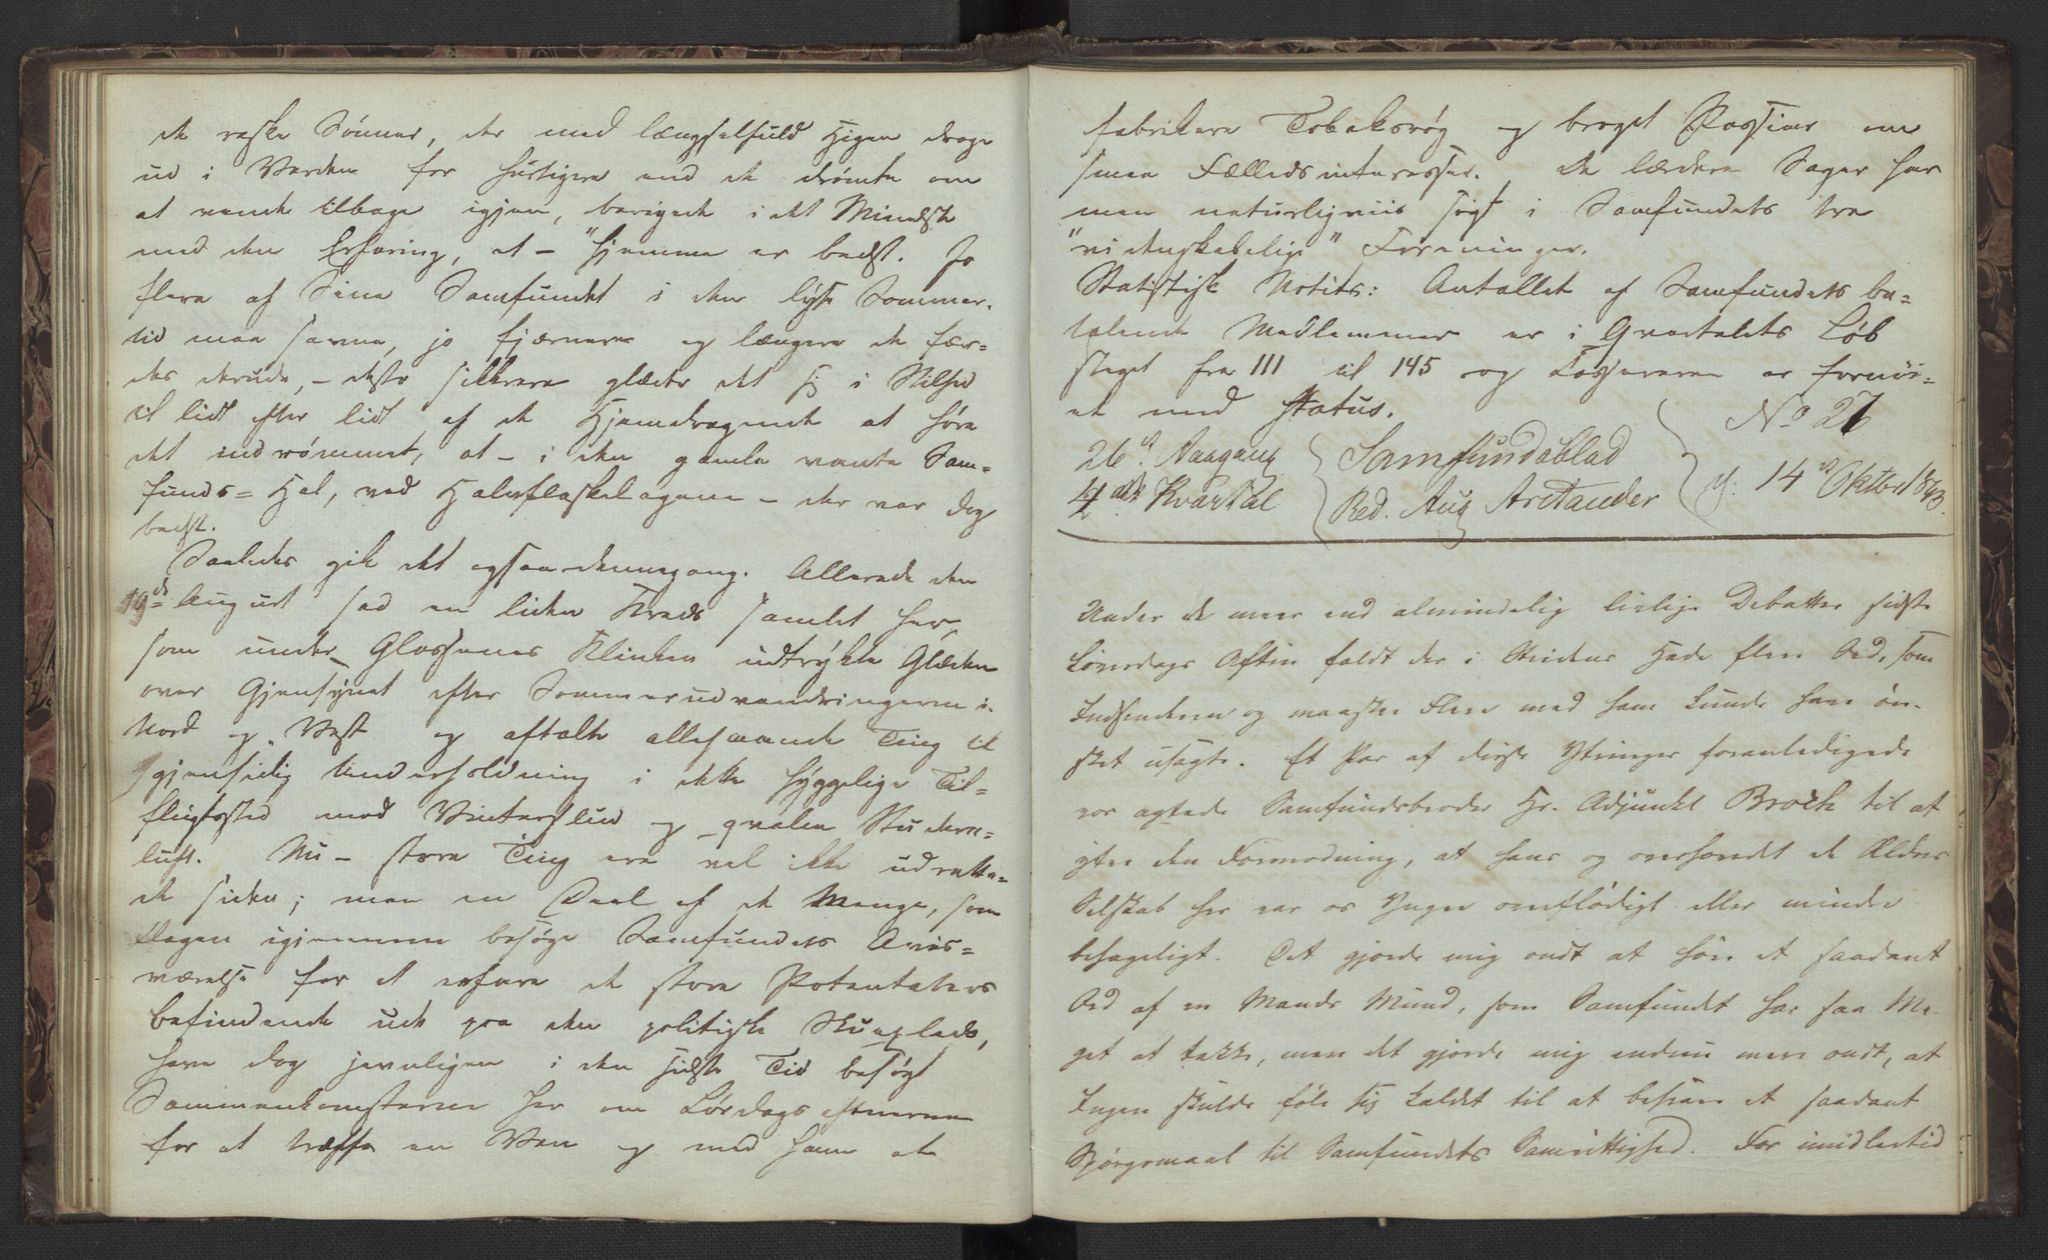 de raske Sønner, der med længselfuld Higen drage
ud i Verden for hurtigere end de drømte om
at vende tilbage igjen, berigede i det Mindste
med den Erfaring, at – "hjemme er bedst. Jo
flere af Sine Samfundet i den lyse Sommer-
tid maa savne, jo fjærnere og længere de fær-
des derude, – desto sikkrere glæder det sig i Stilhed
til lidt efter lidt af de Hjemdragende at høre
det indrømmet, at – i den gamle vante Sam-
funds-Hal, ved Halvflaskelagene – der var dog
bedst.
Saaledes gik det ogsaa dennegang. Allerede den
19de August sad en liden Kreds samlet her,
som under Glassenes Klinken udtrykte Glæden
over Gjensynet efter Sommerudvandringerne i
Nord og Vest og aftalte allehaande Ting til
gjensidig Underholdning i dette hyggelige Til-
flugtssted mod Vinterslud og qvalm Studere-
luft. Nu – store Ting ere vel ikke udrette-
de siden; men en Deel af de Mange, som
Dagen igjennem besøge Samfundets Avis-
værelse for at erfare de store Potentaters
befindende ude paa den politiske Skueplads,
have dog jevnligen i den sidste Tid besøgt
Sammenkomsterne her om Lørdagsaftnerne
for at træffe en Ven og med ham at
fabrikere Tobaksrøg og broget Passiar om
smaa Fælledsinteresser. De lærdere Sager har
man naturligviis søgt i Samfundets tre
"videnskabelige" Foreninger.
Statistisk Notits: Antallet af Samfundets be-
talende Medlemmer er i Qvartalets Løb
steget fra 111 til 145 og Kassereren er fornøi-
et med status.
26de Aargang
4de Kvartal
Samfundsblad
Red. Aug Arctander
No 27
d. 14de Oktbr 1843.
Under de meer end almindelig livlige Debatter sidste
Løverdags Aften faldt der i Stridens Hede flere Ord, som
Indsenderen og maaskee Flere med ham kunde have øn-
sket usagte. Et Par af disse Ytringer foranledigede
vor agtede Samfundsbroder Hr. Adjunkt Broch til at
yttre den Formodning, at hans og overhovedet de Ældres
Selskab her var os Yngre overflødigt eller mindre
behageligt. Det gjorde mig ondt at høre et saadant
Ord af en Mands Mund, som Samfundet har saa Me-
get at takke, men det gjorde mig endnu mere ondt, at
Ingen skulde føle sig kaldet til at besvare et saadant
Spørgsmaal til Samfundets Samvittighed. For imidlertid